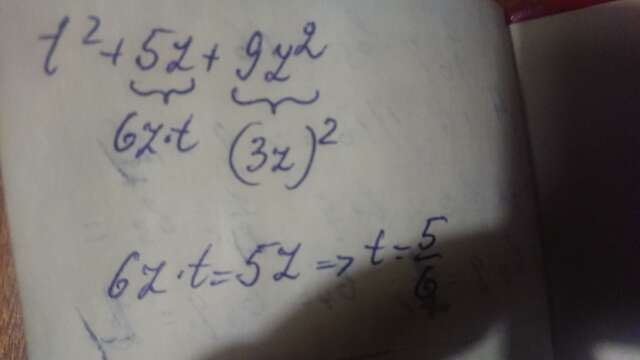 t² + 5z + 9z²
6z·t (3z)²
6z·t = 5z => t = 5/6